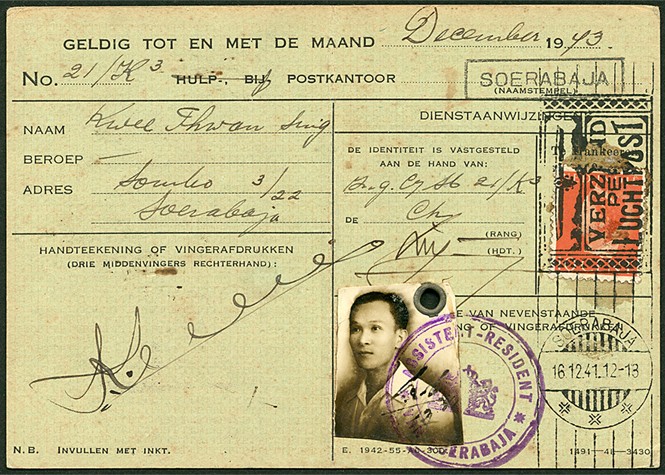 GELDIG TOT EN MET DE MAAND December 1943
No. 21/K3 HULP-, BIJ POSTKANTOOR SOERABAJA
(NAAMSTEMPEL)
NAAM Kwee Thwan Ing
BEROEP —
ADRES Sombo 3/22
Soerabaja
HANDTEEKENING OF VINGERAFDRUKKEN
(DRIE MIDDENVINGERS RECHTERHAND):
N.B. INVULLEN MET INKT.
DIENSTAANWIJZINGEN
DE IDENTITEIT IS VASTGESTELD
AAN DE HAND VAN:
21/K3
DE
(RANG)
(HDT.)
Te frankeeren
VERZ
PE
LUCHTPOST
VAN NEVENSTAANDE
OF VINGERAFDRUKKEN
ASSISTENT-RESIDENT
SOERABAJA
SOERABAJA
16.12.41.12-13
E. 1942-55-A6-300
1491-48-3430